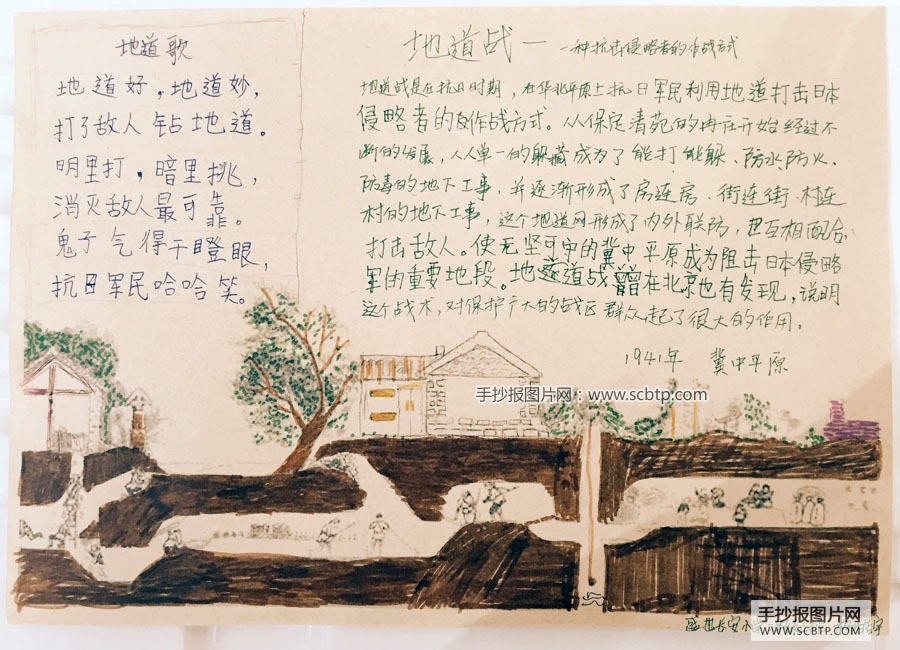 地道歌
地道好，地道妙，
打了敌人钻地道。
明里打，暗里挑，
消灭敌人最可靠。
鬼子气得干瞪眼，
抗日军民哈哈笑。
地道战——一种抗击侵略者的作战方式
地道战是在抗日时期，在华北平原上抗日军民利用地道打击日本
侵略者的作战方式。从保定清苑的冉庄开始经过不
断的发展，从单一的躲藏成为了能打能躲、防水防火、
防毒的地下工事，并逐渐形成了房连房、街连街、村连
村的地下工事，这个地道网形成了内外联防，互相配合，
打击敌人。使无坚可守的冀中平原成为阻击日本侵略
军的重要地段。地道战曾在北京也有发现，说明
这个战术，对保护广大的战区群众起了很大的作用。
1941年 冀中平原
手抄报图片网：www.scbtp.com
手抄报图片网
www.scbtp.com